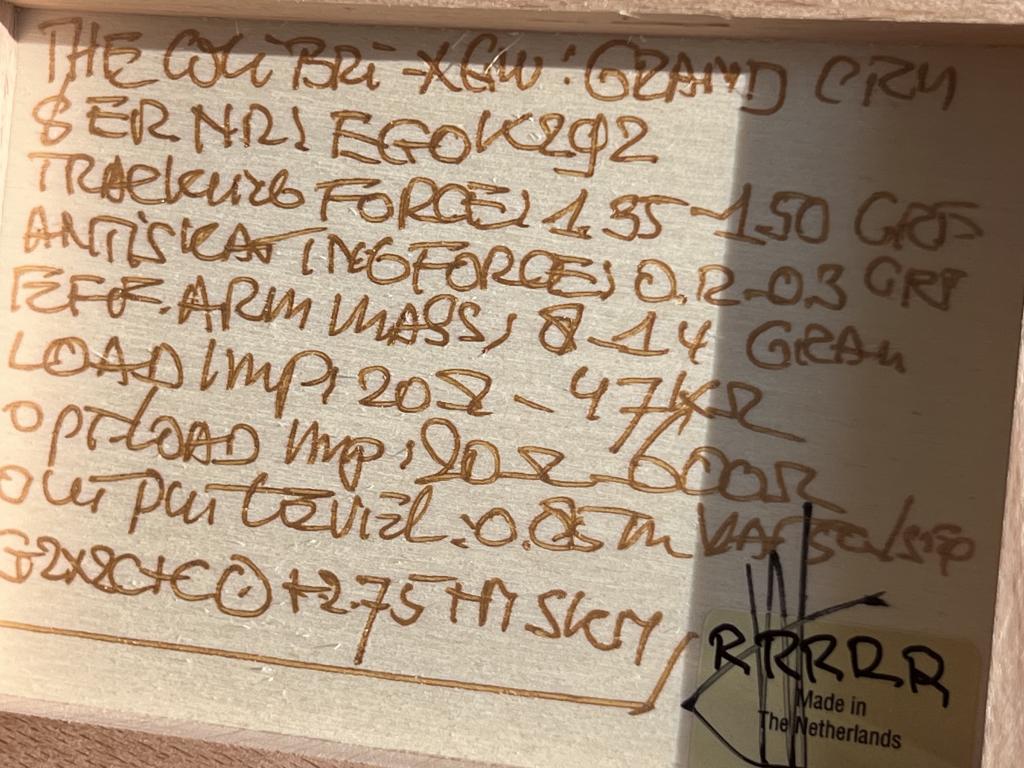 THE COLIBRI-XGW: GRAND CRU
SER NR: EGOK292
TRACKING FORCE: 1.35-1.50 GRF
ANTISKATINGFORCE: 0.2-0.3 GRF
EFF. ARM MASS: 8-14 GRAM
LOAD IMP: 20Ω - 47KΩ
OPT.LOAD IMP: 20Ω-600Ω
OUTPUT LEVEL: 0.85m
+2.75
RRRRR
Made in
The Netherlands